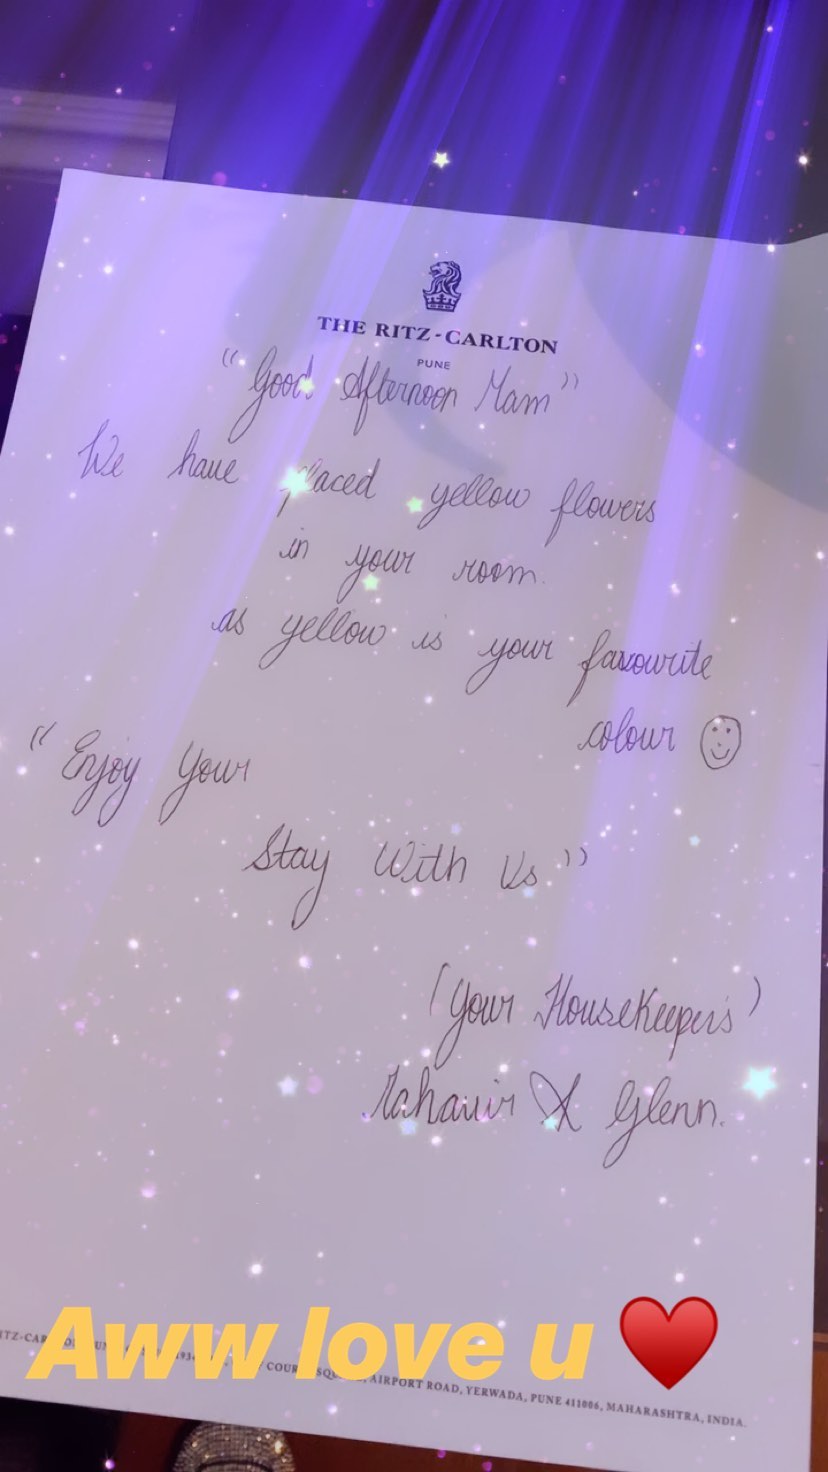 THE RITZ-CARLTON
PUNE
“Good Afternoon Mam”
We have placed yellow flowers
in your room.
as yellow is your favourite
colour
“Enjoy Your
Stay With Us.”
(Your HouseKeepers)
Mahavir & Glenn.
Aww love u ❤️
COURT SQUARE, AIRPORT ROAD, YERWADA, PUNE 411006, MAHARASHTRA, INDIA.